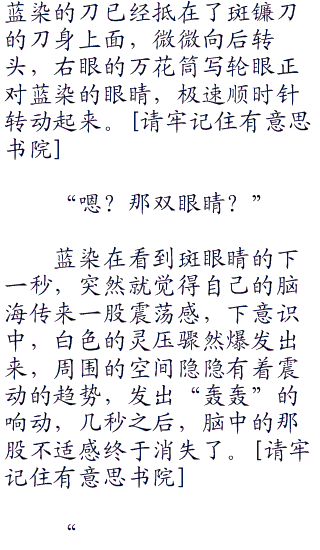 蓝染的刀已经抵在了斑镰刀
的刀身上面，微微向后转
头，右眼的万花筒写轮眼正
对蓝染的眼睛，极速顺时针
转动起来。[请牢记住有意思
书院]
“嗯？那双眼睛？”
蓝染在看到斑眼睛的下
一秒，突然就觉得自己的脑
海传来一股震荡感，下意识
中，白色的灵压骤然爆发出
来，周围的空间隐隐有着震
动的趋势，发出“轰轰”的
响动，几秒之后，脑中的那
股不适感终于消失了。[请牢
记住有意思书院]
“